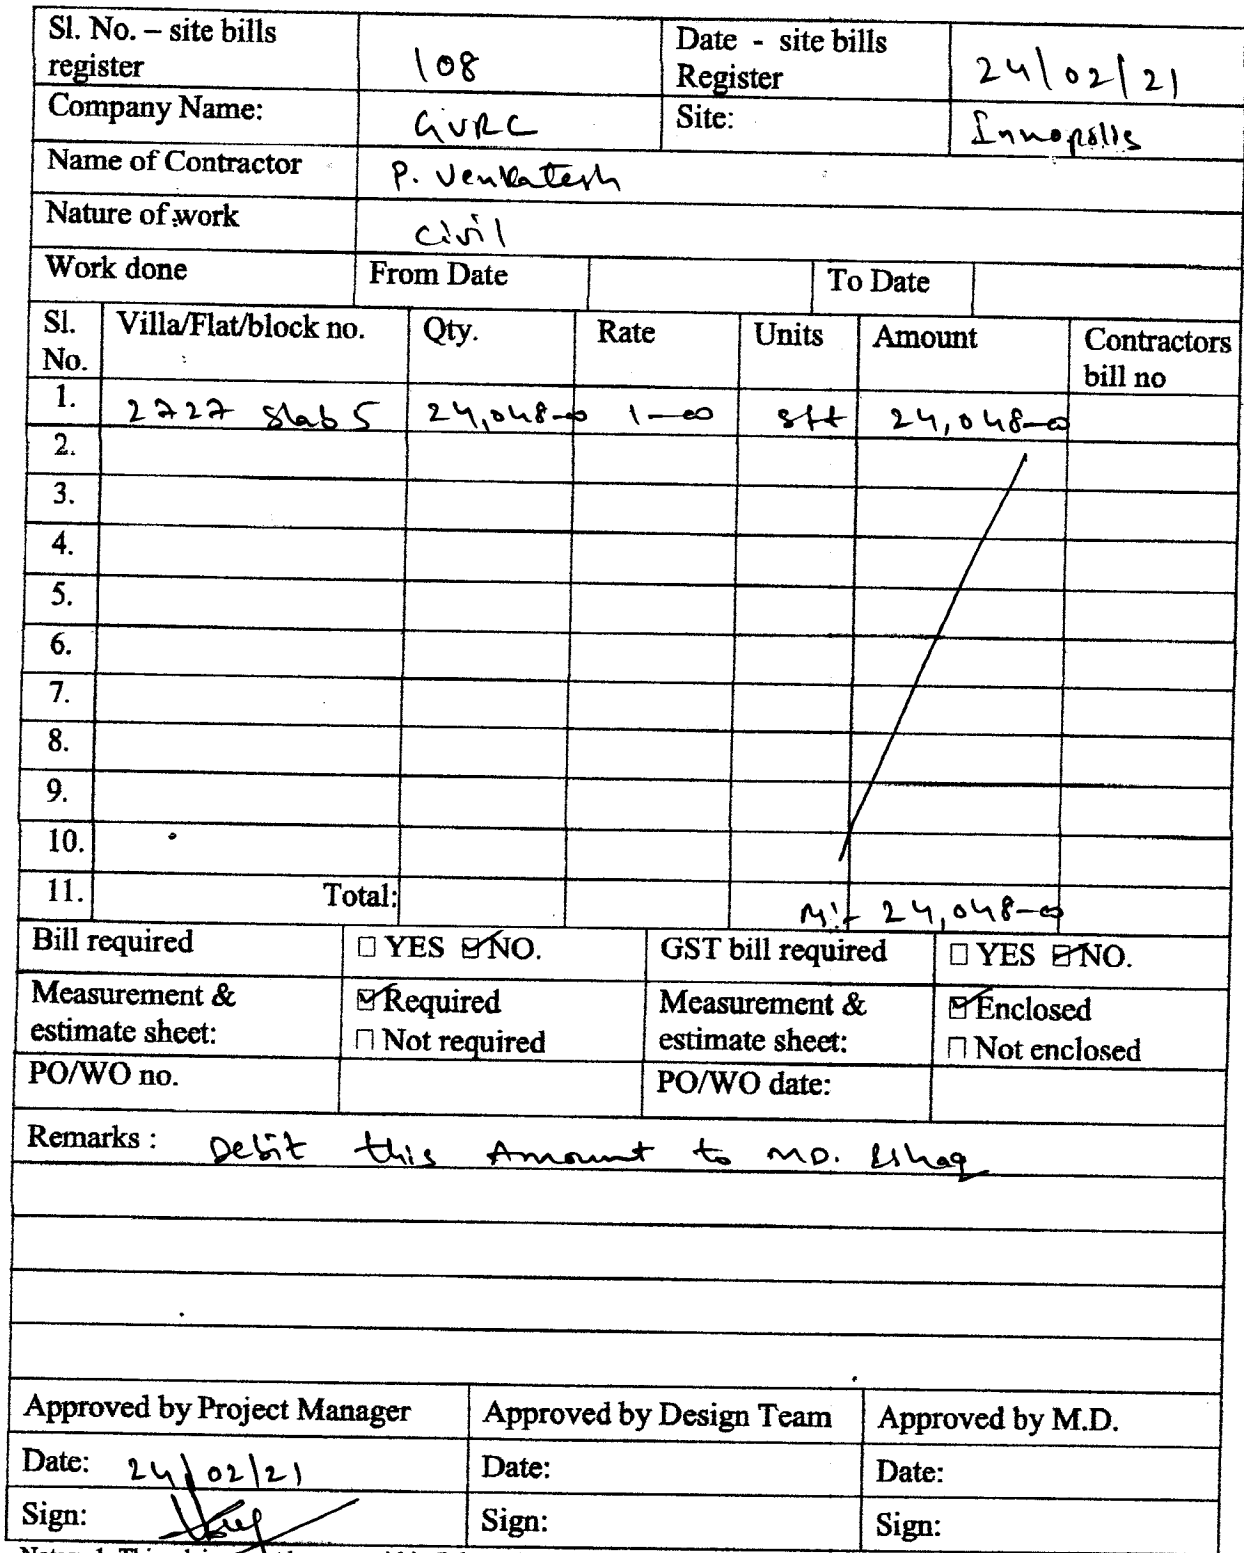 Sl. No. – site bills register 108 Date - site bills Register 24/02/21
Company Name: GVRC Site: Innopolis
Name of Contractor P. Venkatesh
Nature of work civil
Work done From Date To Date
Sl. No. Villa/Flat/block no. Qty. Rate Units Amount Contractors bill no
1. 2727 Slab 5 24,048-00 1-00 sft 24,048-00
2.
3.
4.
5.
6.
7.
8.
9.
10.
11. Total: 24,048-00
Bill required ☐ YES ☑ NO. GST bill required ☐ YES ☑ NO.
Measurement & estimate sheet: ☑ Required ☐ Not required Measurement & estimate sheet: ☑ Enclosed ☐ Not enclosed
PO/WO no. PO/WO date:
Remarks : Debit this Amount to MD. Eshaq
Approved by Project Manager Approved by Design Team Approved by M.D.
Date: 24/02/21 Date: Date:
Sign: Sign: Sign: